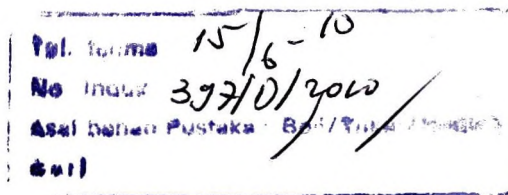 Tgl. terima 15/6-10
No Induk 397/D/2010
Asal bahan Pustaka : Beli/Tukar/
dari